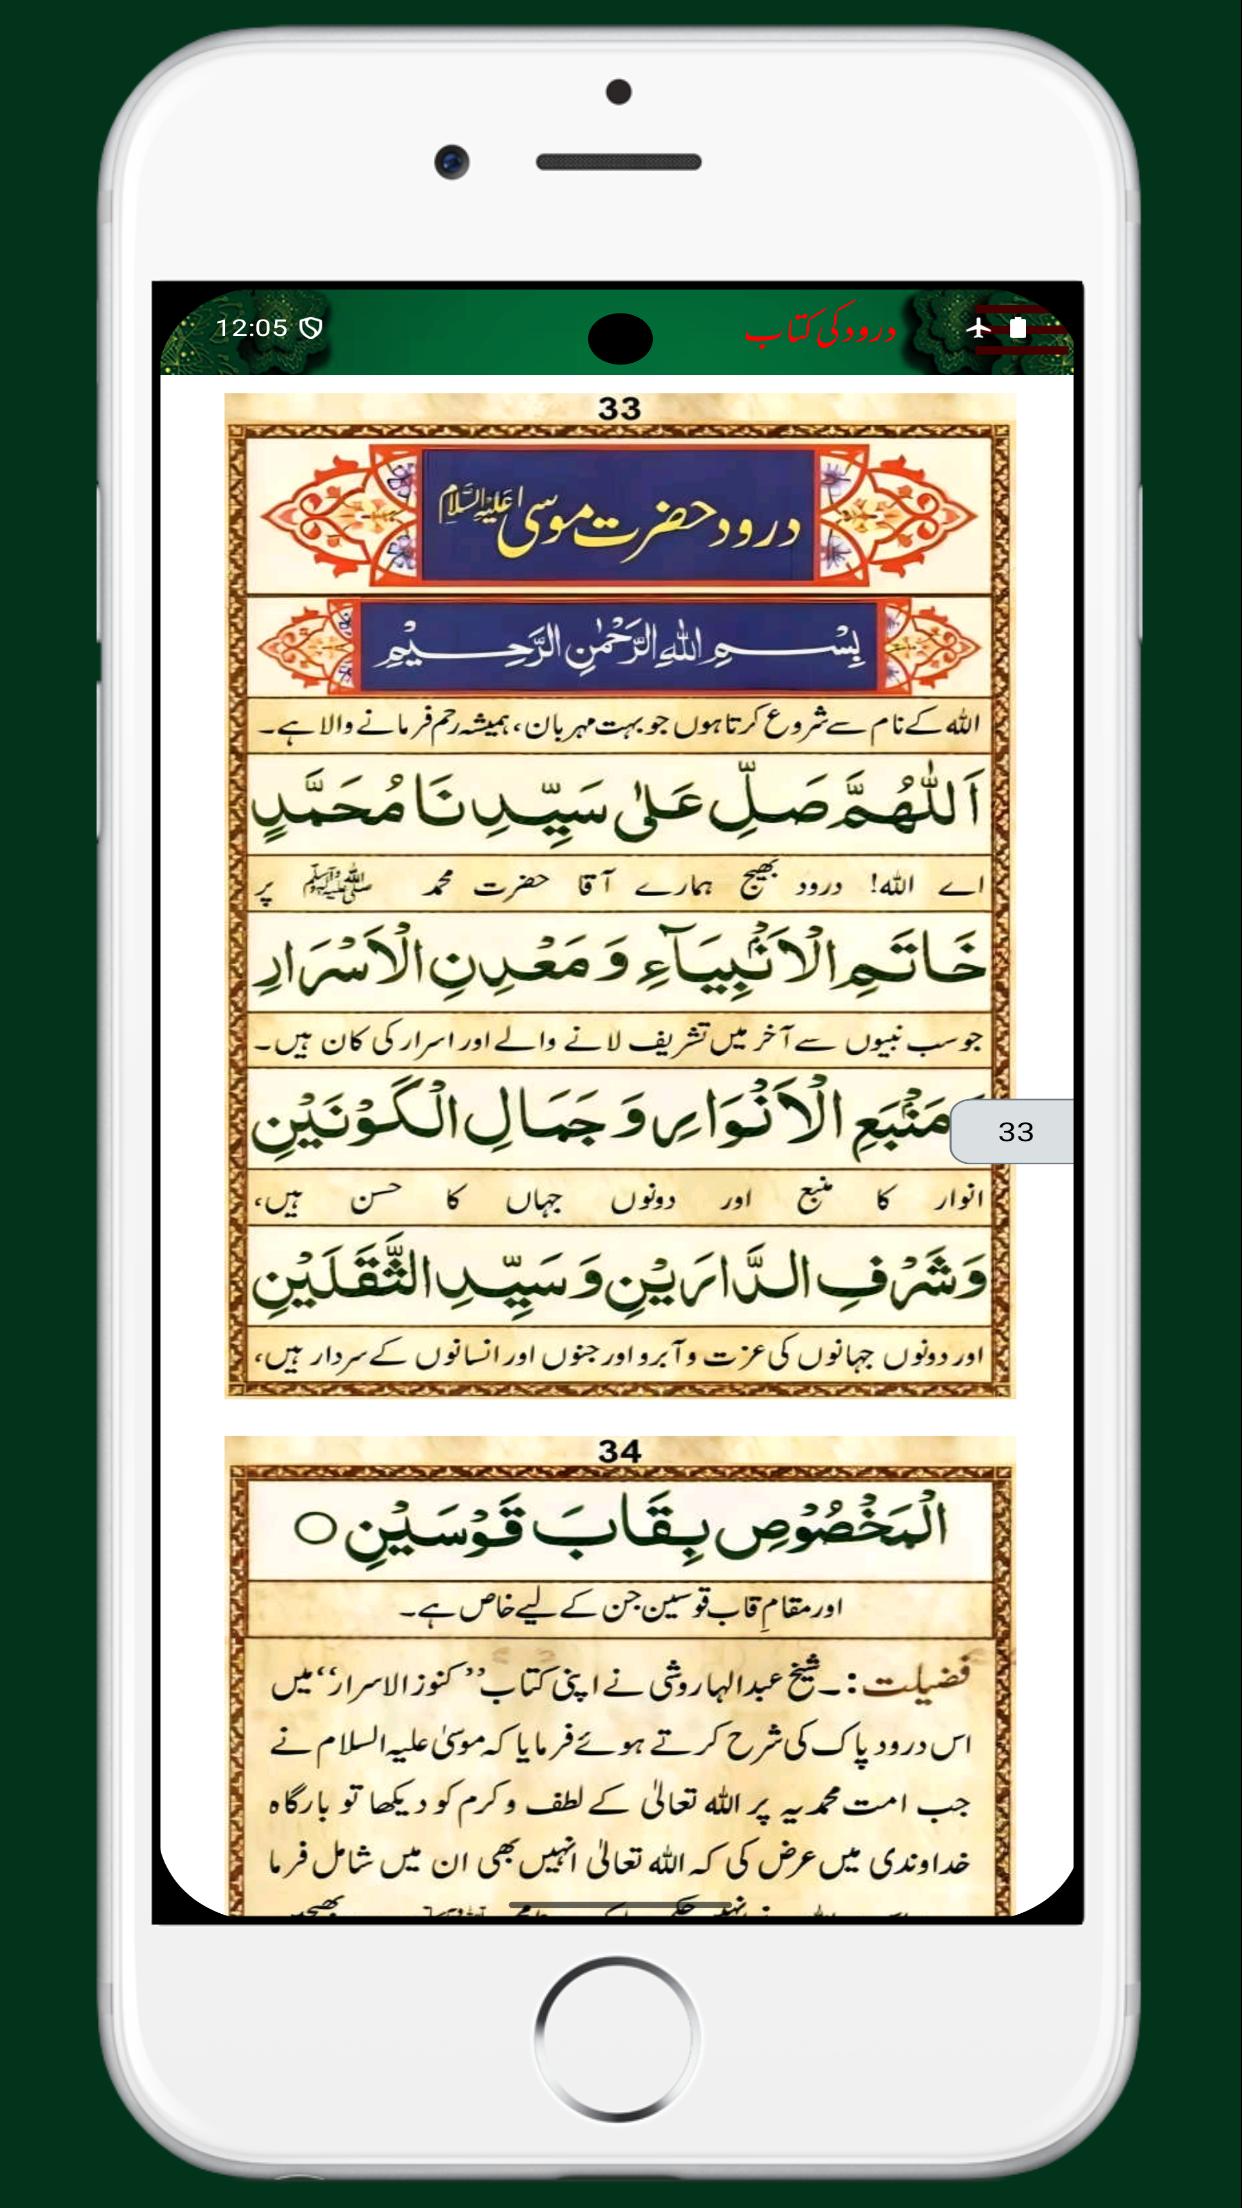 12:05
درود کی کتاب
33
درود حضرت موسیٰ علیہ السلام
بِسْمِ اللّٰهِ الرَّحْمٰنِ الرَّحِيْمِ
اللہ کے نام سے شروع کرتا ہوں جو بہت مہربان، ہمیشہ رحم فرمانے والا ہے۔
اَللّٰهُمَّ صَلِّ عَلٰی سَيِّدِنَا مُحَمَّدٍ
اے اللہ! درود بھیج ہمارے آقا حضرت محمد ﷺ پر
خَاتَمِ الْاَنْۢبِيَآءِ وَ مَعْدِنِ الْاَسْرَارِ
جو سب نبیوں سے آخر میں تشریف لانے والے اور اسرار کی کان ہیں۔
مَنْۢبَعِ الْاَنْوَارِ وَ جَمَالِ الْكَوْنَيْنِ
33
انوار کا منبع اور دونوں جہاں کا حسن ہیں،
وَ شَرْفِ الدَّارَيْنِ وَ سَيِّدِ الثَّقَلَيْنِ
اور دونوں جہانوں کی عزت و آبرو اور جنوں اور انسانوں کے سردار ہیں،
34
الْمَخْصُوْصِ بِقَابَ قَوْسَيْنِ ○
اور مقامِ قاب قوسین جن کے لیے خاص ہے۔
فضیلت:۔ شیخ عبدالہاروشی نے اپنی کتاب ’’کنوز الاسرار‘‘ میں
اس درود پاک کی شرح کرتے ہوئے فرمایا کہ موسیٰ علیہ السلام نے
جب امت محمدیہ پر اللہ تعالیٰ کے لطف و کرم کو دیکھا تو بارگاہ
خداوندی میں عرض کی کہ اللہ تعالیٰ انہیں بھی ان میں شامل فرما